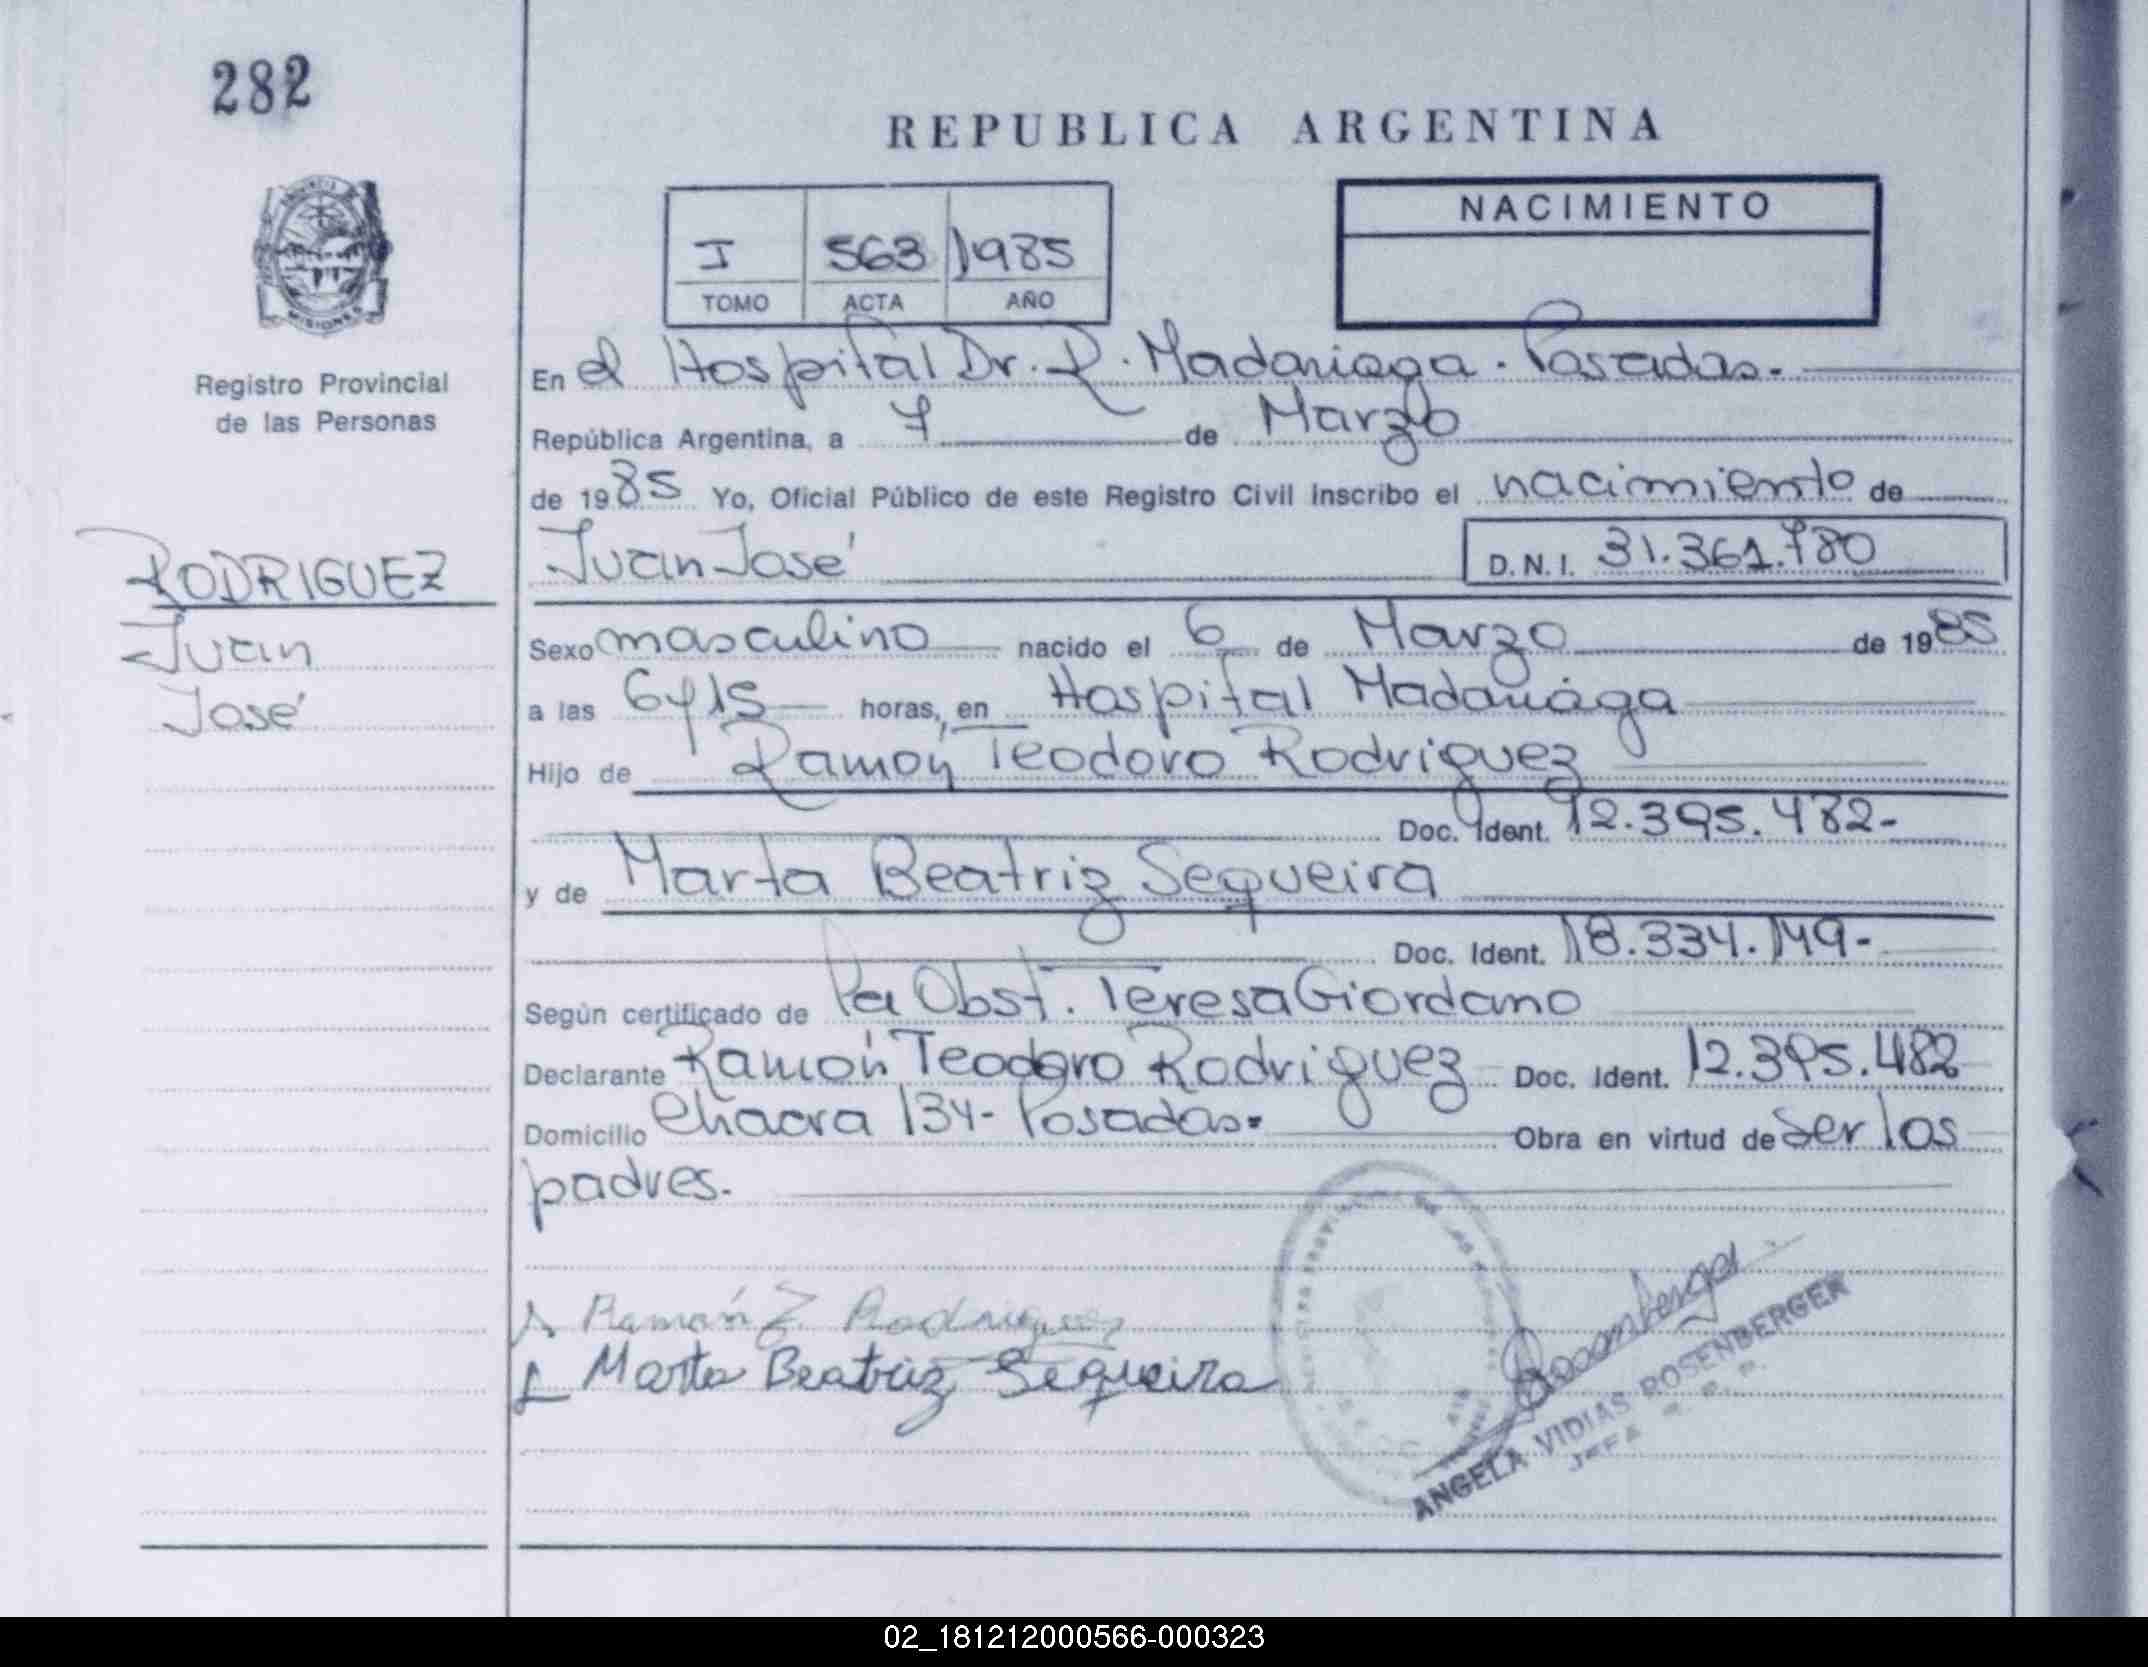 282
REPUBLICA ARGENTINA
NACIMIENTO
I 563 1985
TOMO ACTA AÑO
MISIONES
Registro Provincial
de las Personas
En el Hospital Dr. R. Madariaga - Posadas.-
República Argentina, a 7 de Marzo
de 1985 Yo, Oficial Público de este Registro Civil inscribo el nacimiento de
RODRIGUEZ
Juan
José
Juan José D.N.I. 31.361.780
Sexo masculino nacido el 6 de Marzo de 1985
a las 6 y 15 horas, en Hospital Madariaga
Hijo de Ramón Teodoro Rodriguez
Doc. Ident. 12.395.482-
y de Marta Beatriz Sequeira
Doc. Ident. 18.334.149-
Según certificado de La Obst. Teresa Giordano
Declarante Ramón Teodoro Rodriguez Doc. Ident. 12.395.482
Domicilio Chacra 134- Posadas.- Obra en virtud de Ser los
padres.-
Ramón T. Rodriguez
Marta Beatriz Sequeira
ANGELA VIDIAS ROSENBERGER
JEFA R. P. P.
02_181212000566-000323